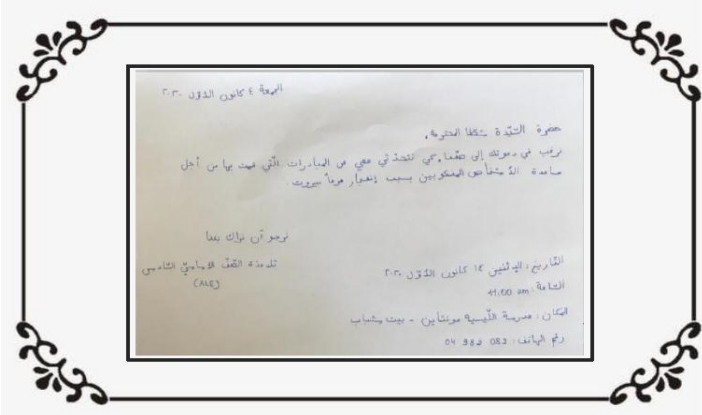 الجمعة ٤ كانون الأوّل ٢٠٢٠
حضرة السّيّدة المحترمة،
نرغب في دعوتك إلى صفّنا، كي تتحدّثي معي عن المبادرات الّتي قمت بها من أجل
مساعدة الأشخاص المنكوبين بسبب إنفجار مرفأ بيروت.
نرجو أن نراك بعدنا
تلامذة الصّفّ الأساسيّ السّادس
(ALE)
التّاريخ: الإثنين ١٤ كانون الأوّل ٢٠٢٠
السّاعة: 11:00 am
المكان: مدرسة اللّيسيه مونتاين - بيت شباب
رقم الهاتف: 04 982 082